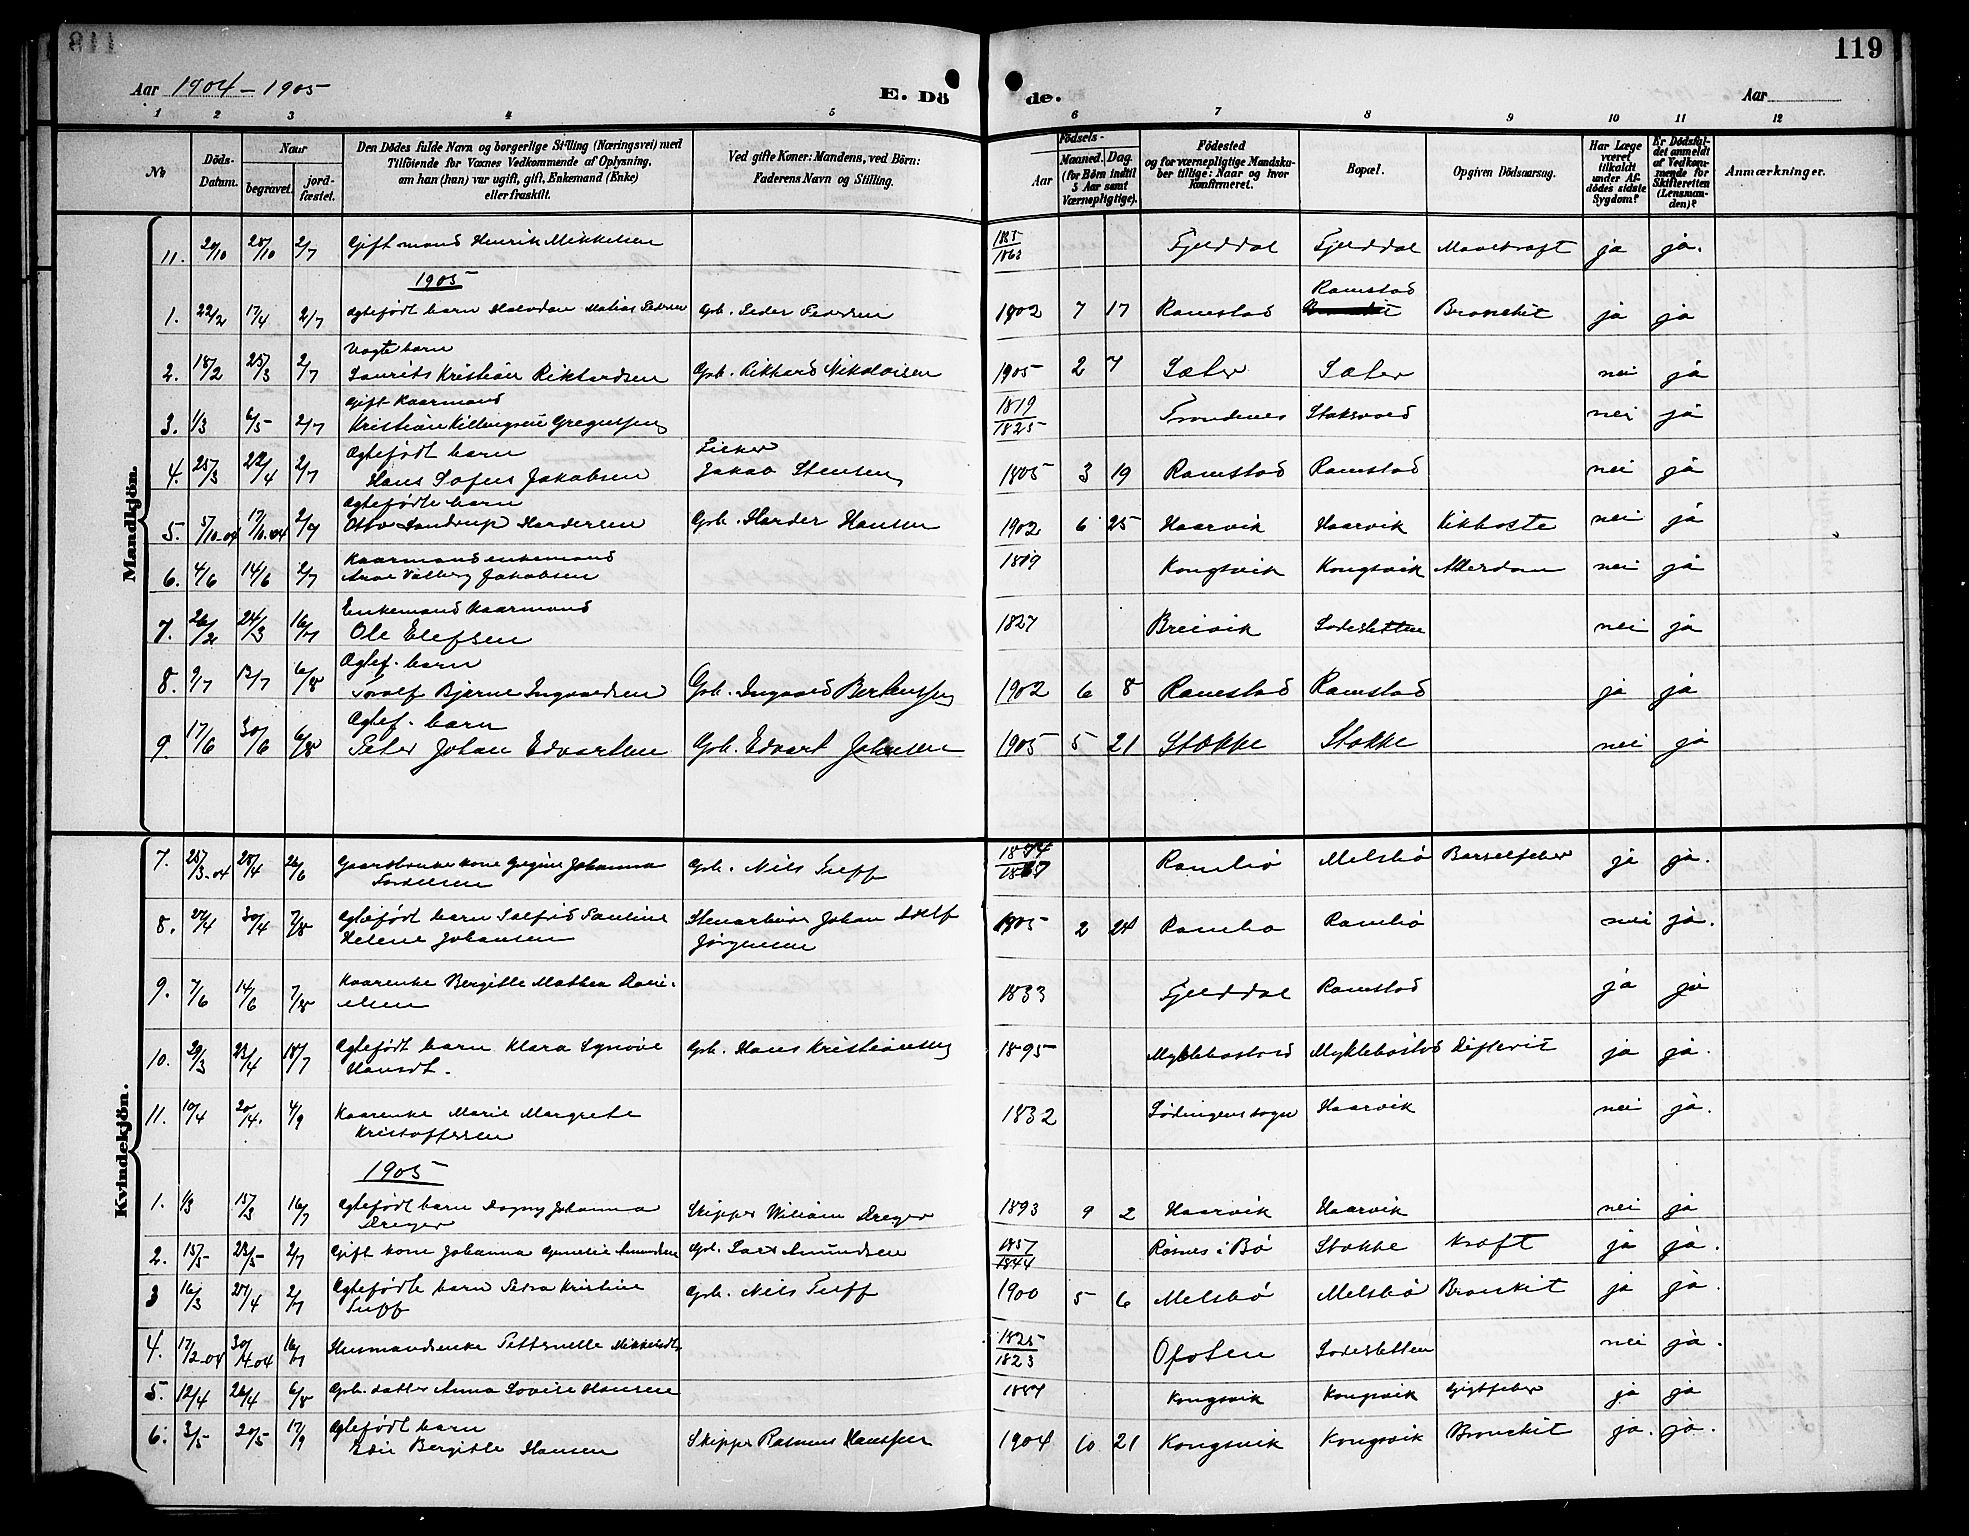 119
Aar 1904-1905
E. Dö de.
Aar
1 2 3 4 5 6 7 8 9 10 11 12
No
Döds-Datum.
Naar
begravet.
jord-fæstet.
Den Dödes fulde Navn og borgerlige Stilling (Næringsvei) med
Tilföiende for Voxnes Vedkommende af Oplysning,
om han (hun) var ugift, gift, Enkemand (Enke)
eller fraskilt.
Ved gifte Koner: Mandens, ved Börn:
Faderens Navn og Stilling.
Födsels-
Aar
Maaned. Dag.
(for Börn indtil
5 Aar samt
Værnepligtige).
Födested
og for værnepligtige Mandska-
ber tillige: Naar og hvor
konfirmeret.
Bopæl.
Opgiven Dödsaarsag.
Har Læge
været
tilkaldt
under Af-
dödes sidste
Sygdom?
Er Dödsfal-
det anmeldt
af Vedkom-
mende for
Skifteretten
(Lensman-
den)?
Anmærkninger.
Mandkjön.
11. 20/10 28/10 2/7 Gift mand Henrik Mikkelsen Fjelddal Fjelddal Mavekraft ja ja.
1905
1. 22/2 17/4 2/7 Ægtefødt barn Halvdan Matias Pedersen Gpb. Peder Pedersen 1902 7 17 Ramstad Ramstad Bronchit ja ja
2. 18/2 25/3 2/7 Uægte barn
Laurits Kristian Rikhardsen Gpb. Rikhard Nikolaisen 1905 2 7 Sæter Sæter nei ja
3. 1/3 6/5 2/7 Gift Kaarmand
Kristian Killingreu Gregussen 1819/1825 Trondenes Stoksvold nei ja
4. 25/3 22/4 2/7 Ægtefødt barn
Hans Sofus Jakobsen Fisker
Jakob Stensen 1805 3 19 Ramstad Ramstad nei ja
5. 5/10-04 17/10-04 2/7 Ægtefødte barn
Otto Sandrup Hardersen Gpb. Harder Hansen 1902 6 25 Haarvik Haarvik Kikhoste nei ja
6. 4/6 14/6 2/7 Kaarmand enkemand
Arne Valberg Jakobsen 1819 Kongsvik Kongsvik Alderdom nei ja
7. 26/2 24/3 16/7 Enkemand Kaarmand
Ole Elefsen 1827 Breivik Sodesletten nei ja
8. 9/7 12/7 6/8 Ægtef. barn
Torolf Bjerne Ingvaldsen Gpb. Ingvald Berthensen 1902 6 8 Ramstad Ramstad ja ja
9. 17/6 30/6 6/8 Ægtef. barn
Peter Johan Edvartsen Gpb. Edvart Johnsen 1905 5 21 Stokke Stokke nei ja
Kvindekjön.
7. 25/3-04 28/4 26/6 Gaardbruker kone Gregine Johanna
Tordersen Gpb. Nils Tuff Rambø Melsbø Barselfeber ja ja.
8. 27/4 30/4 7/8 Ægtefødt barn Salfrid Pauline
Helene Johansen Stenarbeider Johan Adolf
Jørgensen 1905 2 24 Rambø Rambø nei ja.
9. 7/6 14/6 7/8 Kaarenke Bergitte Mathea Dani-
elsen 1833 Fjelddal Ramstad ja ja
10. 29/3 23/4 18/7 Ægtefødt barn Klara Synøve
Hansdt. Gpb. Hans Kristiansen 1895 Myklebostad Myklebostad Difterit ja ja.
11. 10/4 20/4. 4/9 Kaarenke Marie Margrete
Kristoffersen 1832 Lødingens sogn Haarvik nei ja.
1905
1. 1/3 15/3 16/7 Ægtefødt barn Dagny Johanna
Dreyer Skipper Wiliam Dreyer 1893 9 2 Haarvik Haarvik nei ja
2. 15/5 23/5 2/7 Gift kone Johanna Amundsen Gpb. Lars Amundsen 1857/1844 Røsnes i Bø Stokke Kraft ja ja.
3 16/3 27/4 2/7 Ægtefødte barn Petra Kristine
Tuff Gpb. Nils Tuff 1900 5 6 Melsbø Melsbø Bronkit ja ja.
4. 17/2-04 30/4-04 16/7 Husmandsenke Petternelle Mikkelsdt. 1825/1823 Ofoten Sodesletten nei ja.
5. 12/4 26/4 6/8 Gpb. datter Anna Lovise Hansen Kongsvik Kongsvik Gigtfeber ja ja
6. 3/5 20/5 17/9 Ægtefødt barn
Edie Bergitte Hansen Skipper Rasmus Hanssen 1904 10 21 Kongsvik Kongsvik Bronchit ja. ja.